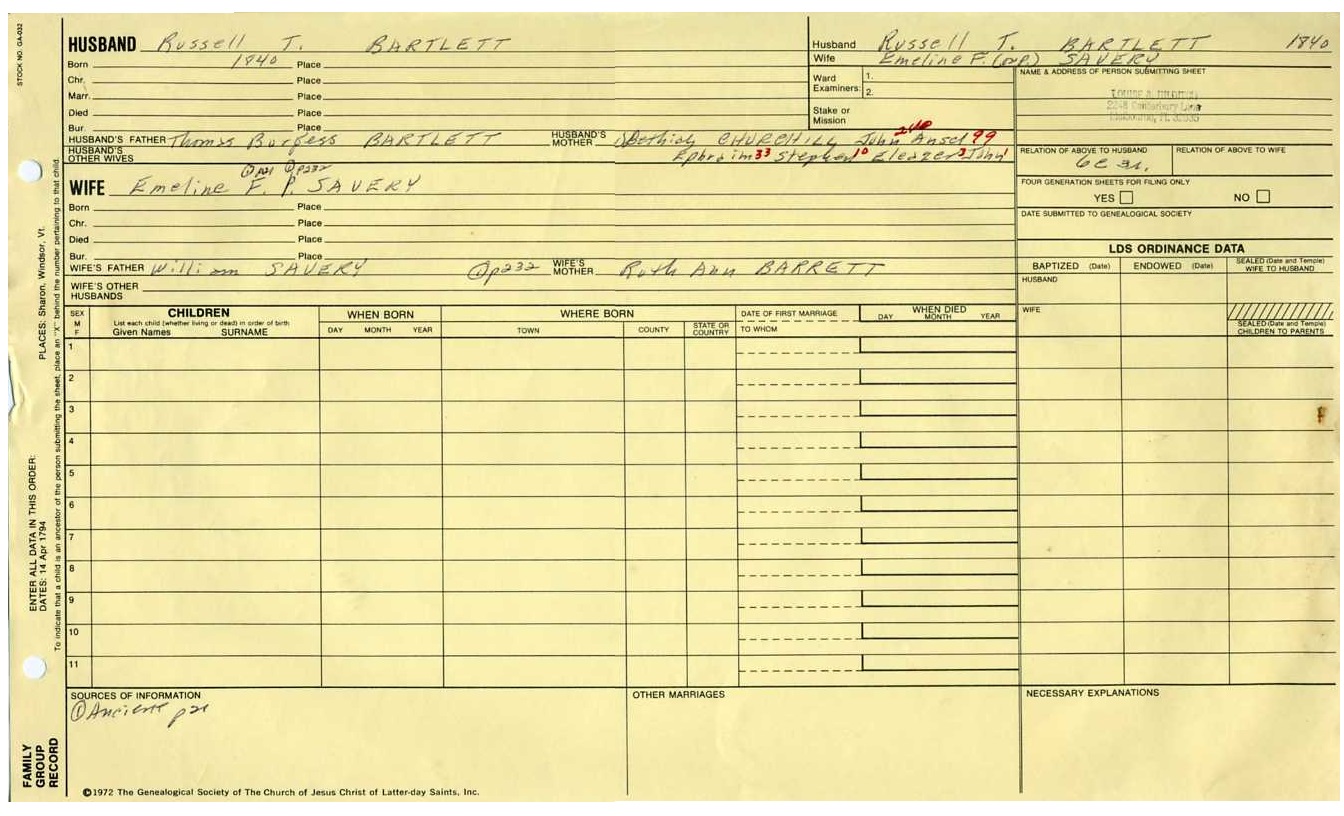 STOCK NO. GA-032
HUSBAND Russell T. BARTLETT
Born 1840 Place
Chr. Place
Marr. Place
Died Place
Bur. Place
HUSBAND'S FATHER Thomas Burgess BARTLETT HUSBAND'S MOTHER Bethiah CHURCHILL John 240 Ansel 99
HUSBAND'S OTHER WIVES Ephraim 33 Stephen 10 Eleazer 3 John 1
① p21 ① p232
WIFE Emeline F. P. SAVERY
Born Place
Chr. Place
Died Place
Bur. Place
WIFE'S FATHER William SAVERY ① p232 WIFE'S MOTHER Ruth Ann BARRETT
WIFE'S OTHER HUSBANDS
Husband Russell T. BARTLETT 1840
Wife Emeline F. (or P.) SAVERY
Ward Examiners: 1.
2.
Stake or Mission
NAME & ADDRESS OF PERSON SUBMITTING SHEET
2248 Canterbury Lane
RELATION OF ABOVE TO HUSBAND RELATION OF ABOVE TO WIFE
FOUR GENERATION SHEETS FOR FILING ONLY
YES NO
DATE SUBMITTED TO GENEALOGICAL SOCIETY
LDS ORDINANCE DATA
BAPTIZED (Date) ENDOWED (Date) SEALED (Date and Temple) WIFE TO HUSBAND
HUSBAND
WIFE
SEALED (Date and Temple) CHILDREN TO PARENTS
SEX M F
CHILDREN
List each child (whether living or dead) in order of birth
Given Names SURNAME
WHEN BORN
DAY MONTH YEAR
WHERE BORN
TOWN COUNTY STATE OR COUNTRY
DATE OF FIRST MARRIAGE
TO WHOM
WHEN DIED
DAY MONTH YEAR
1
2
3
4
5
6
7
8
9
10
11
SOURCES OF INFORMATION
① Ancient p21
OTHER MARRIAGES
NECESSARY EXPLANATIONS
©1972 The Genealogical Society of The Church of Jesus Christ of Latter-day Saints, Inc.
FAMILY GROUP RECORD
ENTER ALL DATA IN THIS ORDER:
DATES: 14 Apr 1794
PLACES: Sharon, Windsor, Vt.
To indicate that a child is an ancestor of the person submitting the sheet, place an "X" behind the number pertaining to that child.